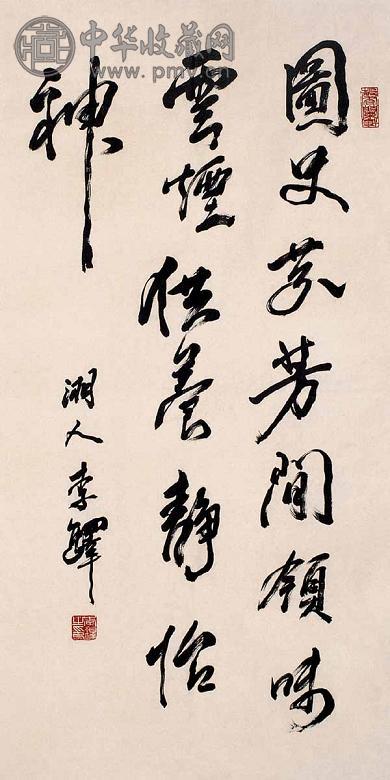 圖史芬芳間領味
雲煙供養靜怡
神
湘人李鐸
中华收藏网
www.pmv.cn